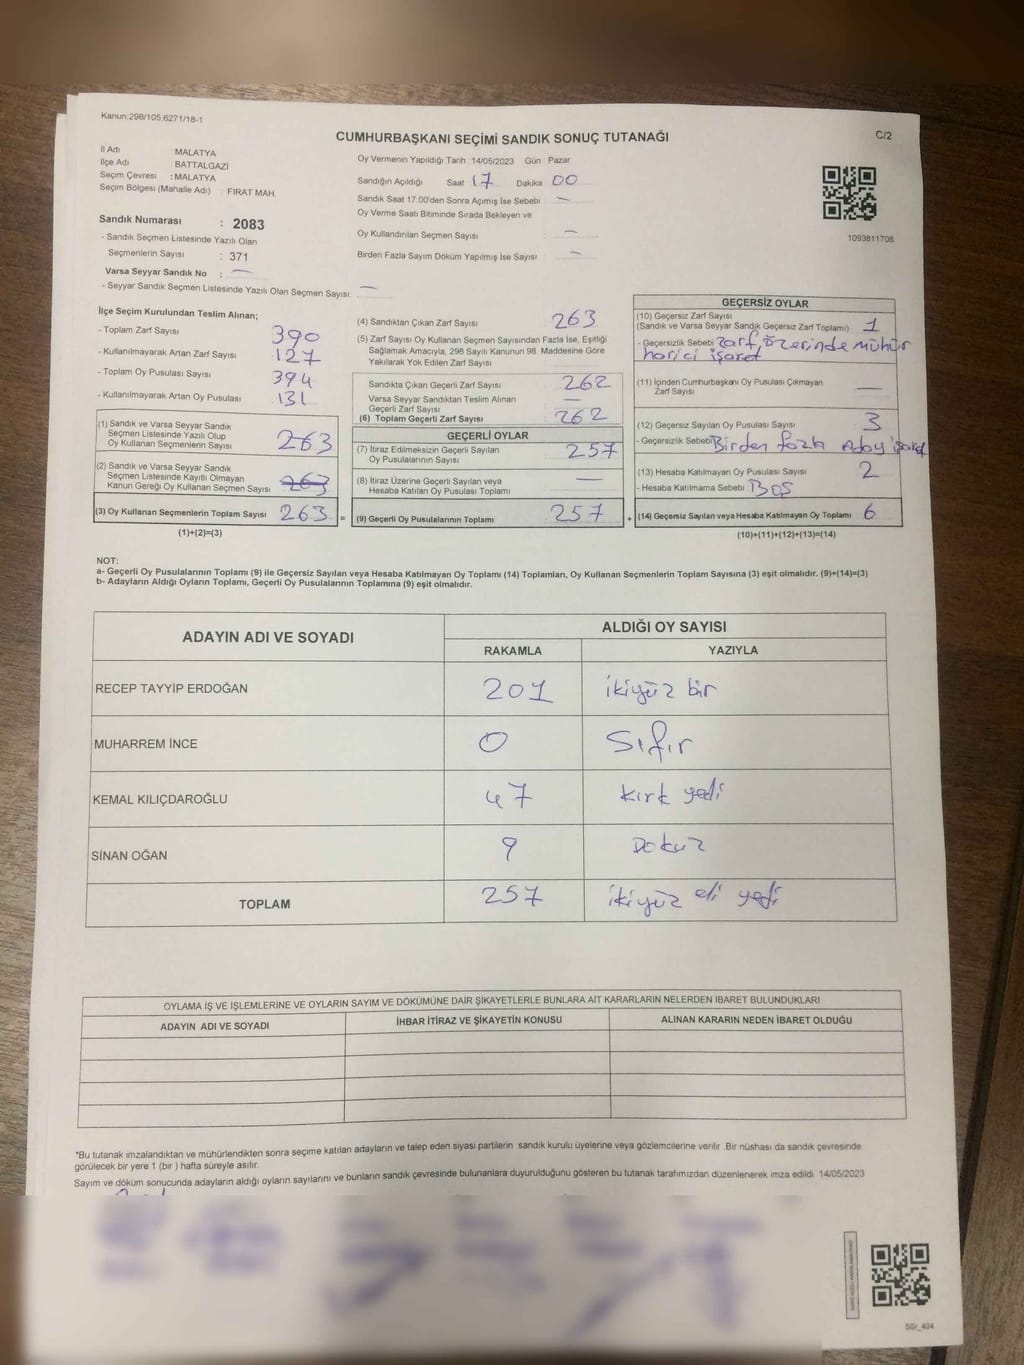 Kanun:298/105,6271/18-1
CUMHURBAŞKANI SEÇİMİ SANDIK SONUÇ TUTANAĞI
C/2
İl Adı MALATYA
İlçe Adı BATTALGAZİ
Seçim Çevresi : MALATYA
Seçim Bölgesi (Mahalle Adı) : FIRAT MAH.
Oy Vermenin Yapıldığı Tarih :14/05/2023 Gün : Pazar
Sandığın Açıldığı Saat 17 Dakika 00
Sandık Saat 17:00'den Sonra Açımış İse Sebebi —
Oy Verme Saati Bitiminde Sırada Bekleyen ve
Oy Kullandırılan Seçmen Sayısı —
Birden Fazla Sayım Döküm Yapılmış İse Sayısı —
1093811708
Sandık Numarası : 2083
- Sandık Seçmen Listesinde Yazılı Olan
Seçmenlerin Sayısı : 371
Varsa Seyyar Sandık No : —
- Seyyar Sandık Seçmen Listesinde Yazılı Olan Seçmen Sayısı: —
İlçe Seçim Kurulundan Teslim Alınan;
- Toplam Zarf Sayısı 390
- Kullanılmayarak Artan Zarf Sayısı 127
- Toplam Oy Pusulası Sayısı 394
- Kullanılmayarak Artan Oy Pusulası 131
(1) Sandık ve Varsa Seyyar Sandık
Seçmen Listesinde Yazılı Olup
Oy Kullanan Seçmenlerin Sayısı 263
(2) Sandık ve Varsa Seyyar Sandık
Seçmen Listesinde Kayıtlı Olmayan
Kanun Gereği Oy Kullanan Seçmen Sayısı 263
(3) Oy Kullanan Seçmenlerin Toplam Sayısı 263 =
(1)+(2)=(3)
(4) Sandıktan Çıkan Zarf Sayısı 263
(5) Zarf Sayısı Oy Kullanan Seçmen Sayısından Fazla İse, Eşitliği
Sağlamak Amacıyla, 298 Sayılı Kanunun 98. Maddesine Göre
Yakılarak Yok Edilen Zarf Sayısı
Sandıkta Çıkan Geçerli Zarf Sayısı 262
Varsa Seyyar Sandıktan Teslim Alınan
Geçerli Zarf Sayısı —
(6) Toplam Geçerli Zarf Sayısı 262
GEÇERLİ OYLAR
(7) İtiraz Edilmeksizin Geçerli Sayılan
Oy Pusulalarının Sayısı 257
(8) İtiraz Üzerine Geçerli Sayılan veya
Hesaba Katılan Oy Pusulası Toplamı —
(9) Geçerli Oy Pusulalarının Toplamı 257 +
GEÇERSİZ OYLAR
(10) Geçersiz Zarf Sayısı
(Sandık ve Varsa Seyyar Sandık Geçersiz Zarf Toplamı) : 1
- Geçersizlik Sebebi Zarf üzerinde mühür
harici işaret
(11) İçinden Cumhurbaşkanı Oy Pusulası Çıkmayan
Zarf Sayısı —
(12) Geçersiz Sayılan Oy Pusulası Sayısı 3
- Geçersizlik Sebebi Birden fazla Aday işaret
(13) Hesaba Katılmayan Oy Pusulası Sayısı 2
- Hesaba Katılmama Sebebi Boş
(14) Geçersiz Sayılan veya Hesaba Katılmayan Oy Toplamı 6
(10)+(11)+(12)+(13)=(14)
NOT:
a- Geçerli Oy Pusulalarının Toplamı (9) ile Geçersiz Sayılan veya Hesaba Katılmayan Oy Toplamı (14) Toplamları, Oy Kullanan Seçmenlerin Toplam Sayısına (3) eşit olmalıdır. (9)+(14)=(3)
b- Adayların Aldığı Oyların Toplamı, Geçerli Oy Pusulalarının Toplamına (9) eşit olmalıdır.
ADAYIN ADI VE SOYADI
ALDIĞI OY SAYISI
RAKAMLA YAZIYLA
RECEP TAYYİP ERDOĞAN 201 ikiyüz bir
MUHARREM İNCE 0 Sıfır
KEMAL KILIÇDAROĞLU 47 kırk yedi
SİNAN OĞAN 9 Dokuz
TOPLAM 257 ikiyüz eli yedi
OYLAMA İŞ VE İŞLEMLERİNE VE OYLARIN SAYIM VE DÖKÜMÜNE DAİR ŞİKAYETLERLE BUNLARA AİT KARARLARIN NELERDEN İBARET BULUNDUKLARI
ADAYIN ADI VE SOYADI İHBAR İTİRAZ VE ŞİKAYETİN KONUSU ALINAN KARARIN NEDEN İBARET OLDUĞU
*Bu tutanak imzalandıktan ve mühürlendikten sonra seçime katılan adayların ve talep eden siyasi partilerin sandık kurulu üyelerine veya gözlemcilerine verilir. Bir nüshası da sandık çevresinde
görülecek bir yere 1 (bir ) hafta süreyle asılır.
Sayım ve döküm sonucunda adayların aldığı oyların sayılarını ve bunların sandık çevresinde bulunanlara duyurulduğunu gösteren bu tutanak tarafımızdan düzenlenerek imza edildi. 14/05/2023
SSI_404